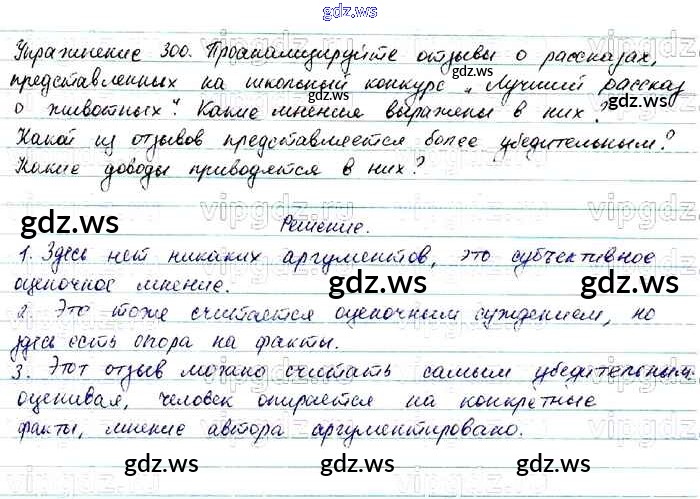 gdz.ws
Упражнение 300. Проанализируйте отзывы о рассказах,
представленных на школьный конкурс „Лучший рассказ
о животных". Какие мнения выражены в них?
Какой из отзывов представляется более убедительным?
Какие доводы приводятся в них?
Решение.
1. Здесь нет никаких аргументов, это субъективное
оценочное мнение.
2. Это тоже считается оценочным суждением, но
здесь есть опора на факты.
3. Этот отзыв можно считать самым убедительным.
оценивая, человек опирается на конкретные
факты, мнение автора аргументировано.
gdz.ws
gdz.ws
gdz.ws
gdz.ws
gdz.ws
gdz.ws
gdz.ws
gdz.ws
gdz.ws
gdz.ws
gdz.ws